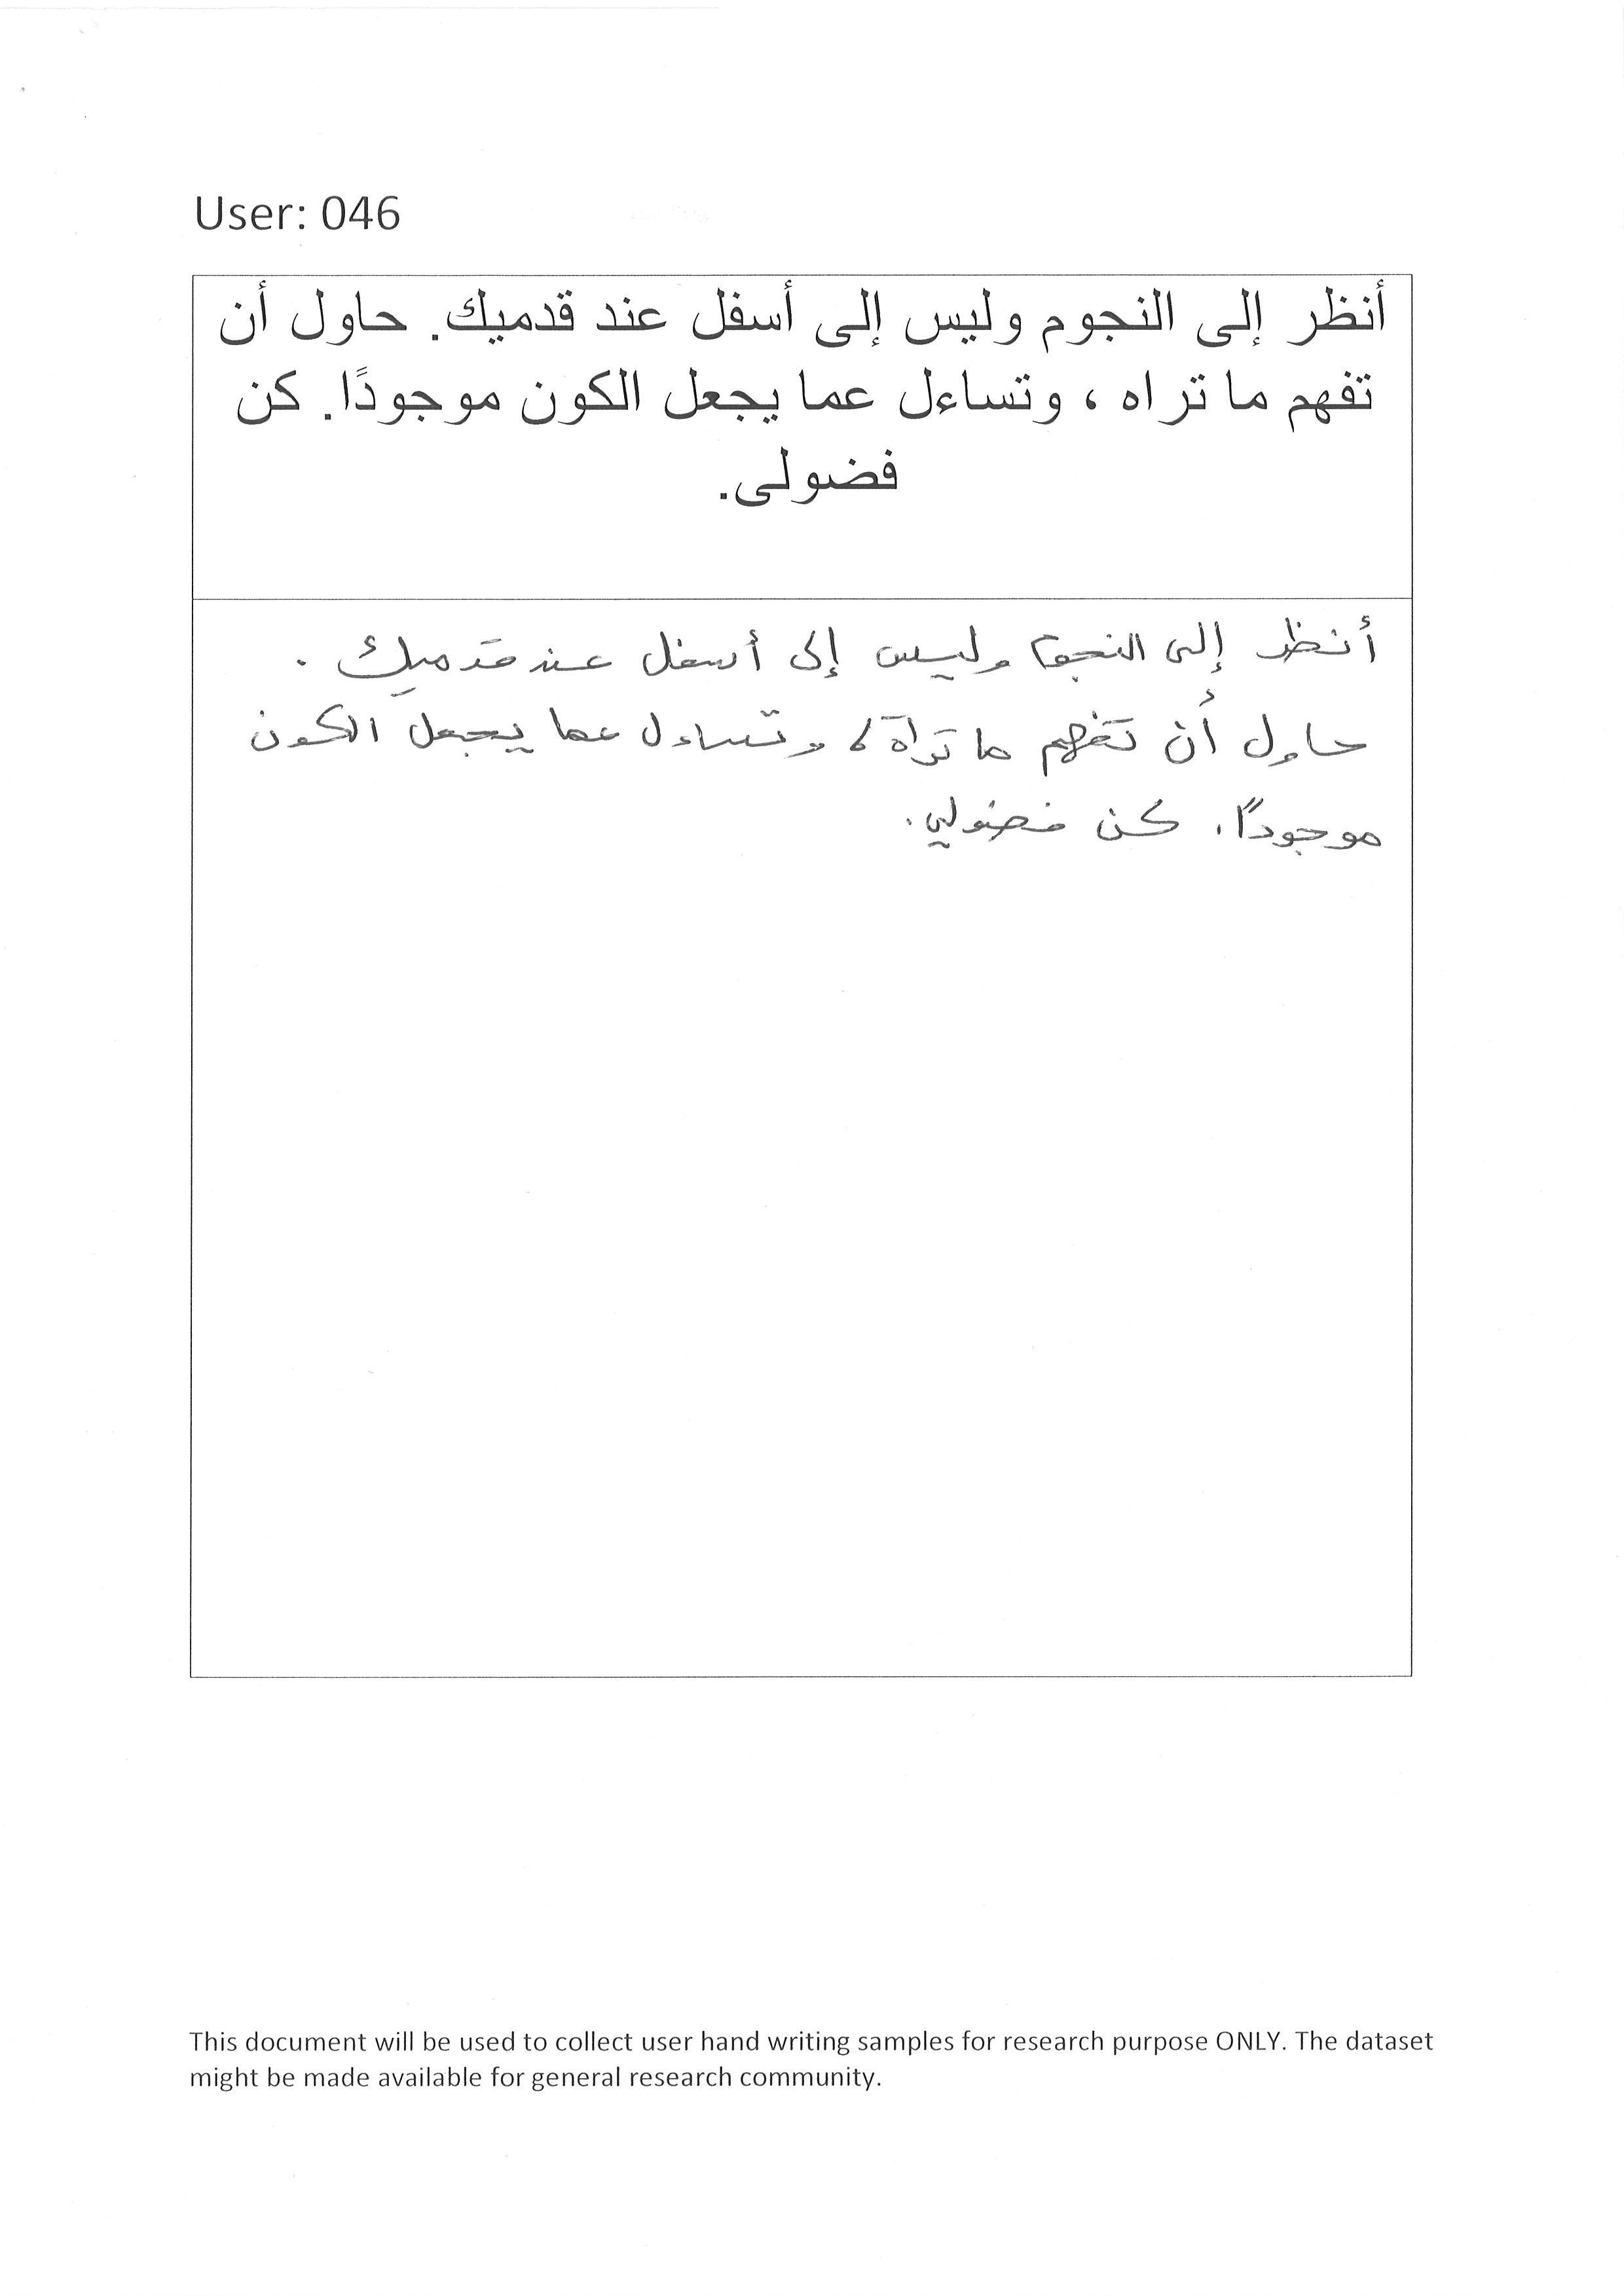 User: 046
أنظر إلى النجوم وليس إلى أسفل عند قدميك. حاول أن
تفهم ما تراه ، وتساءل عما يجعل الكون موجودًا. كن
فضولى.
أنظر إلى النجوم وليس إلى أسفل عند قدميك .
حاول أن تفهم ما تراة ، وتساءل عما يجعل الكون
موجودًا. كن فضولي.
This document will be used to collect user hand writing samples for research purpose ONLY. The dataset
might be made available for general research community.